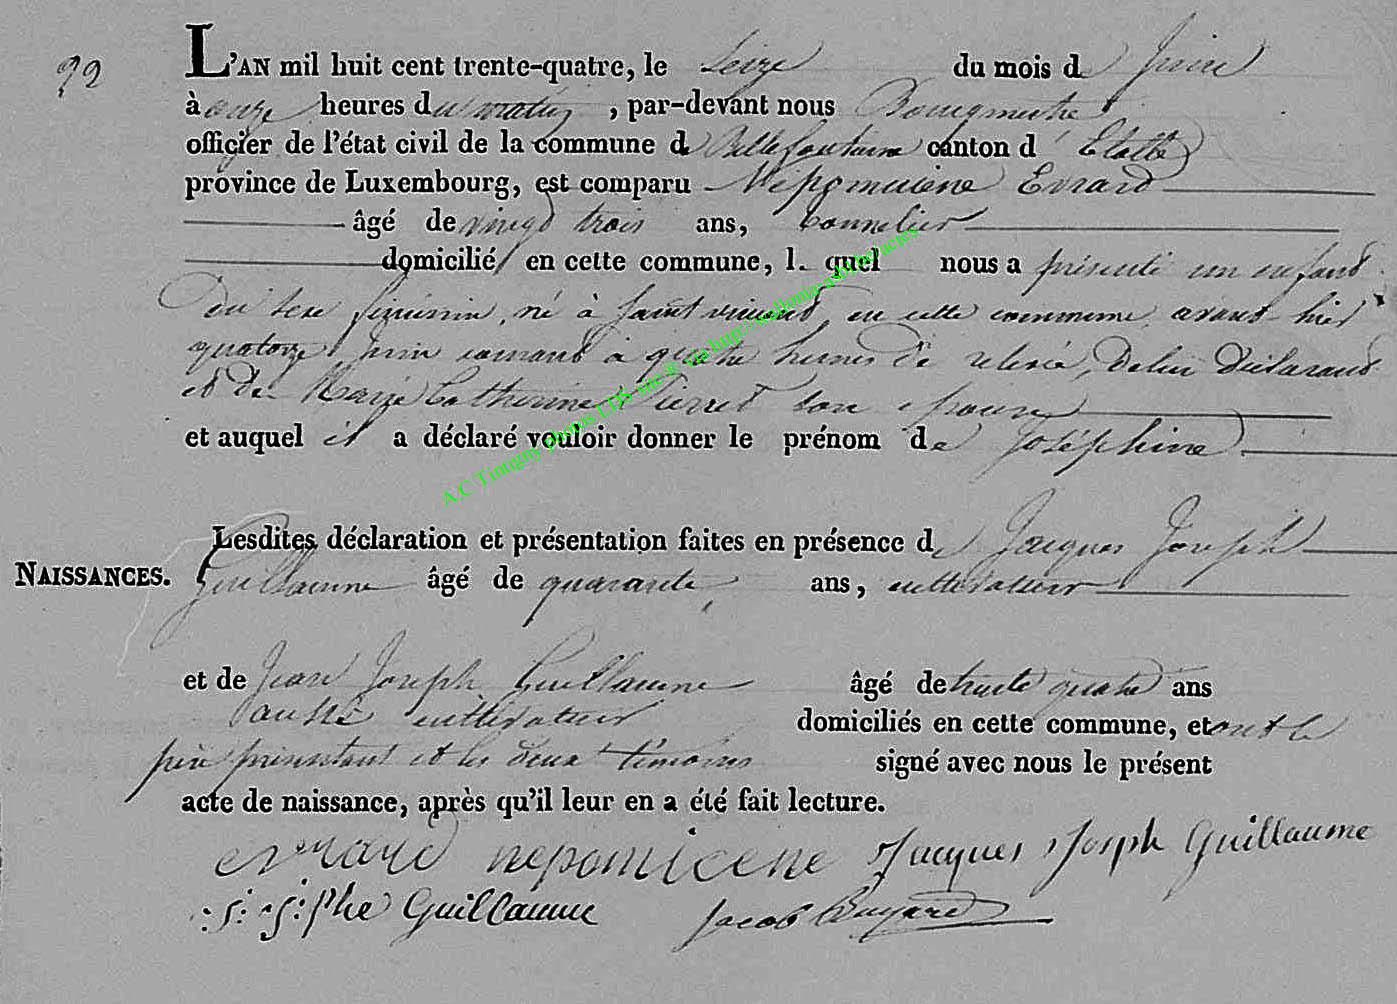 22
L'AN mil huit cent trente-quatre, le Seize du mois de Juin
à onze heures du matin, par-devant nous Bourgmestre
officier de l'état civil de la commune de Bellefontaine canton d' Etalle
province de Luxembourg, est comparu Népomucène Evrard
âgé de vingt trois ans, tonnelier
domicilié en cette commune, l. quel nous a présenté un enfant
du sexe féminin, né à Saint vincent en cette commune, avant hier
quatorze Juin courant à quatre heures de relevée De lui Déclarant
et de Marie Catherine Pierret son épouse
et auquel il a déclaré vouloir donner le prénom de Joséphine
Lesdites déclaration et présentation faites en présence de Jacques Joseph
NAISSANCES.
Guillaume âgé de quarante ans, cultivateur
et de Jean Joseph Guillaume âgé de trente quatre ans
aussi cultivateur domiciliés en cette commune, et ont le
père présentant et les deux témoins signé avec nous le présent
acte de naissance, après qu'il leur en a été fait lecture.
evrard nepomicene Jacques Joseph Guillaume
j: j:sphe Guillaume Jacob
A.C Tintigny photos LDS site @ via http://wallonia-asbl.be/actes